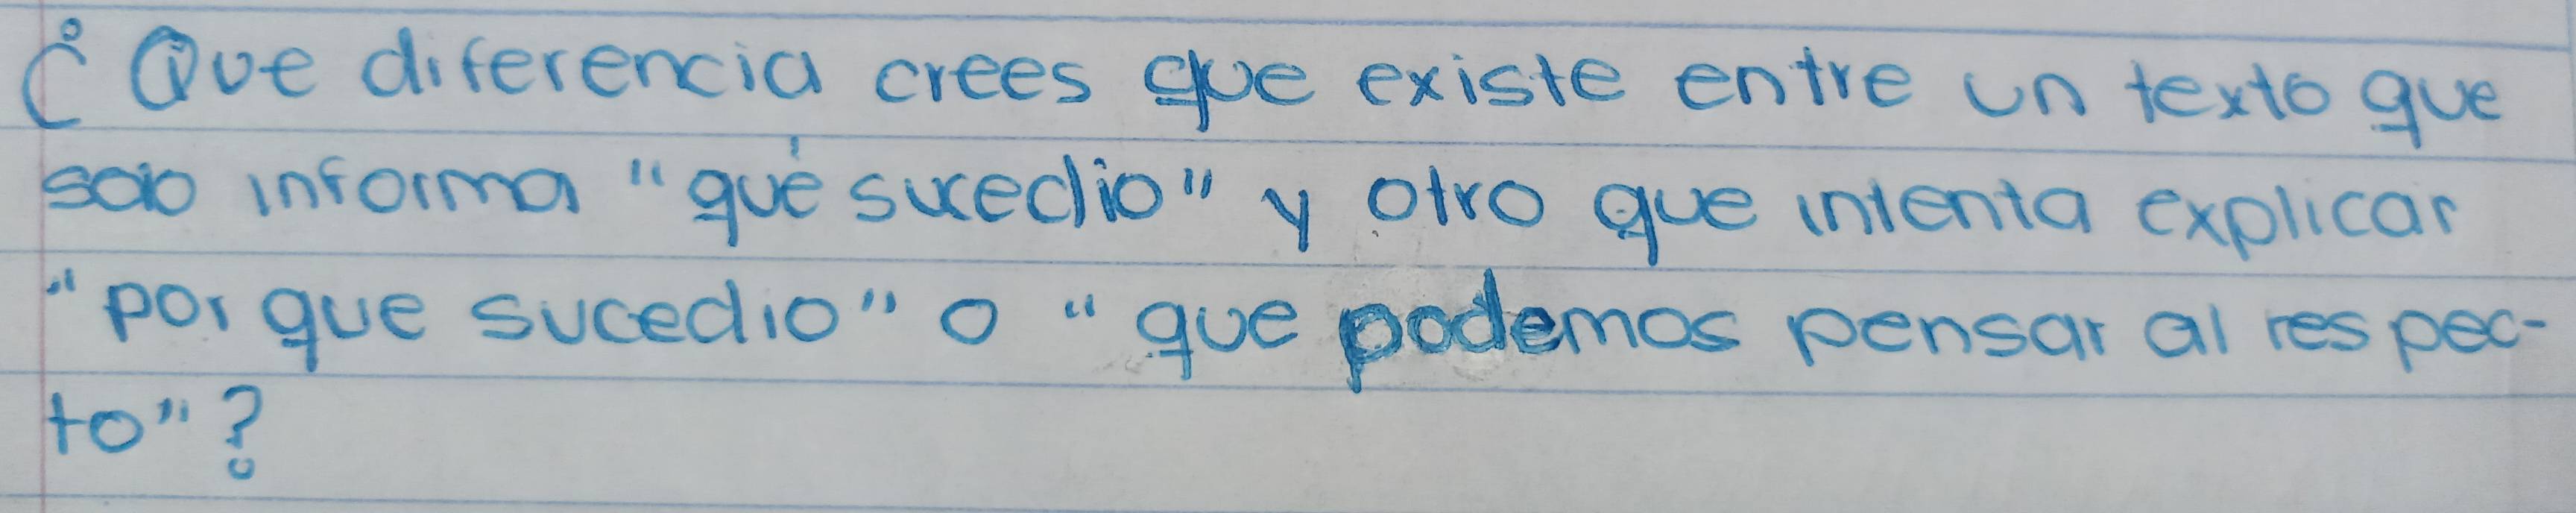 ¿Que diferencia crees que existe entre un texto que
solo informa "qué sucedio" y otro que intenta explicar
"por que sucedio" o "que podemos pensar al respec-
to"?